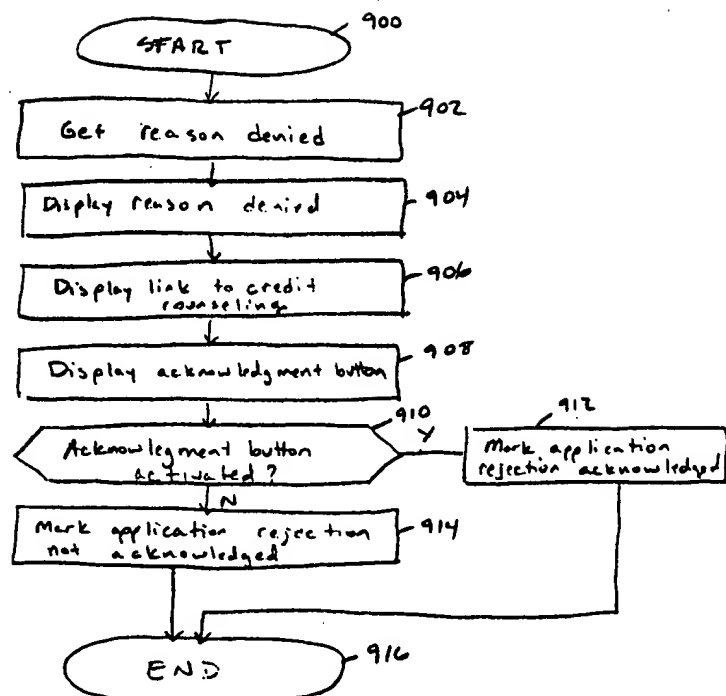 START
900
Get reason denied
902
Display reason denied
904
Display link to credit
counseling
906
Display acknowledgment button
908
Acknowlegment button
activated?
910
Y
N
912
Mark application
rejection acknowledged
Mark application rejection
not acknowledged
914
END
916